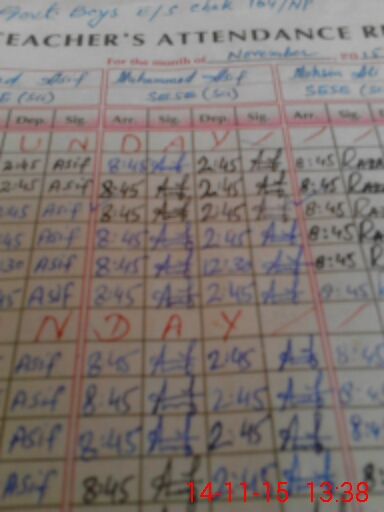 Govt Boys E/S Chak 164/NP
TEACHER'S ATTENDANCE RE
For the month of November
Asif Mohammad Asif Mohsin Ali
E (Sci) SESE (Sci) SESE (Sci)
Dep. Sig. Arr. Sig. Dep. Sig. Arr.
U N D A Y
2:45 Asif 8:45 Asif 2:45 Asif 8:45
2:45 Asif 8:45 Asif 2:45 Asif 8:45
:45 Asif 8:45 Asif 2:45 Asif 8:45
45 Asif 8:45 Asif 2:45 Asif 8:45
:30 Asif 8:45 Asif 12:30 Asif 8:45
5 Asif 8:45 Asif 2:45 Asif 8:45
N D A Y
Asif 8:45 Asif 2:45 Asif 8:45
Asif 8:45 Asif 2:45 Asif 8:4
Asif 8:45 Asif 2:45 Asif 8:4
Asif 8:45 Asif 2:45 Asif 8:
14-11-15 13:38